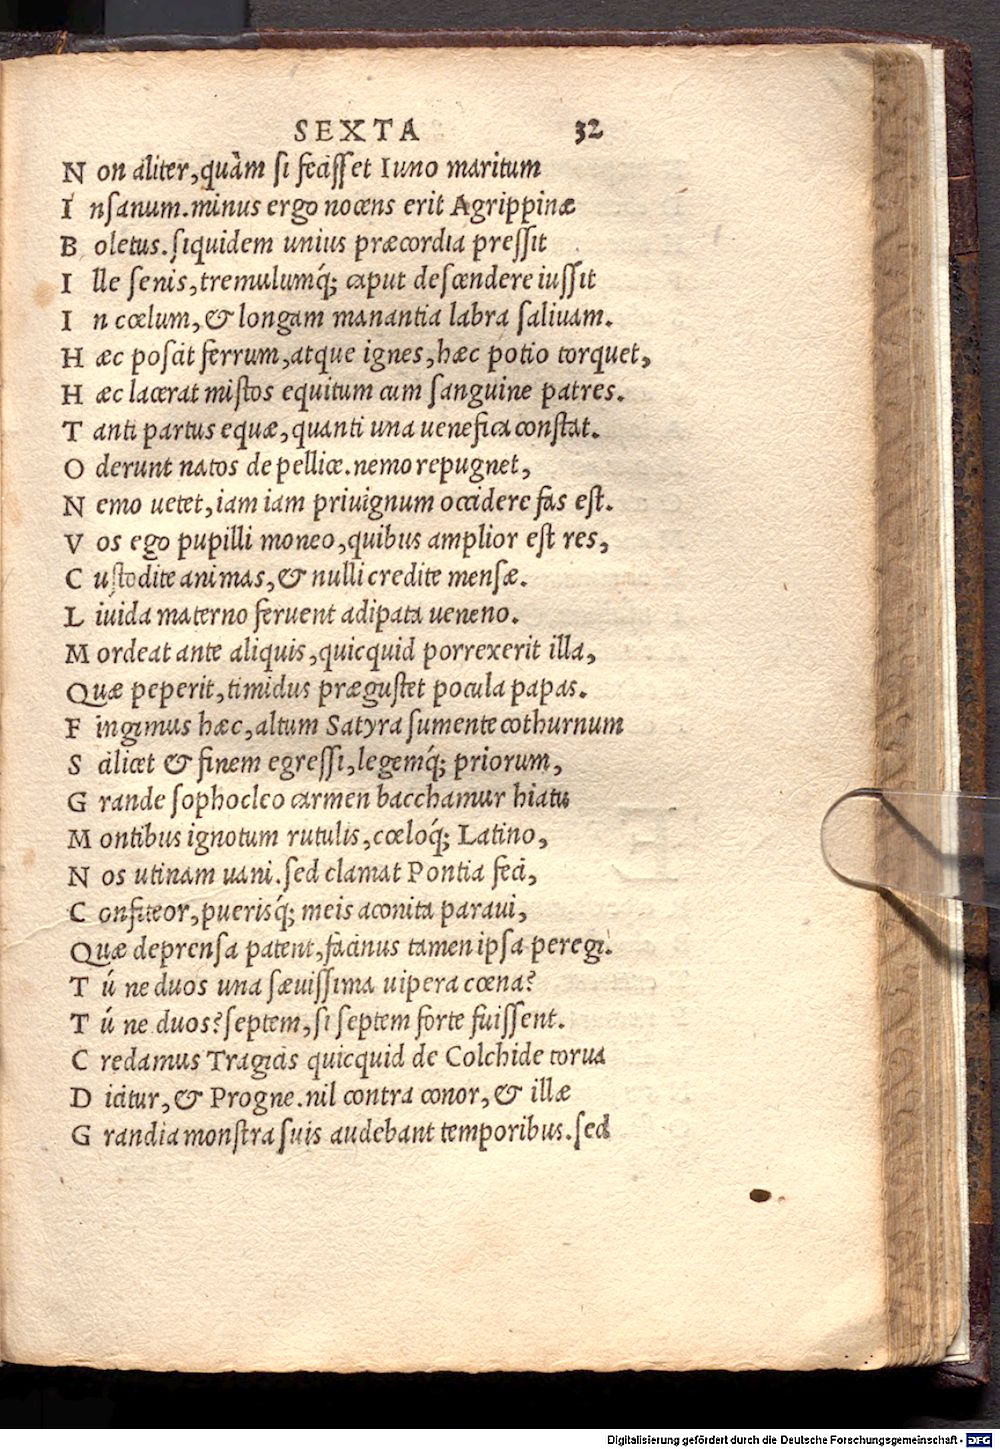 SEXTA 32
N on aliter, quàm si fecisset Iuno maritum
I nsanum. minus ergo nocens erit Agrippinæ
B oletus. siquidem unius præcordia pressit
I lle senis, tremulumq́; caput descendere iussit
I n cœlum, & longam manantia labra saliuam.
H æc poscit ferrum, atque ignes, hæc potio torquet,
H æc lacerat mistos equitum cum sanguine patres.
T anti partus equæ, quanti una uenefica constat.
O derunt natos de pellice. nemo repugnet,
N emo uetet, iam iam priuignum occidere fas est.
V os ego pupilli moneo, quibus amplior est res,
C ustodite animas, & nulli credite mensæ.
L iuida materno feruent adipata ueneno.
M ordeat ante aliquis, quicquid porrexerit illa,
Quæ peperit, timidus prægustet pocula papas.
F ingimus hæc, altum Satyra sumente cothurnum
S cilicet & finem egressi, legemq́; priorum,
G rande sophocleo carmen bacchamur hiatu
M ontibus ignotum rutulis, cœloq́; Latino,
N os utinam uani. sed clamat Pontia feci,
C onfiteor, puerisq́; meis aconita paraui,
Quæ deprensa patent, facinus tamen ipsa peregi.
T ú ne duos una sæuissima uipera cœna?
T ú ne duos? septem, si septem forte fuissent.
C redamus Tragicis quicquid de Colchide torua
D icitur, & Progne. nil contra conor, & illæ
G randia monstra suis audebant temporibus. sed
Digitalisierung gefördert durch die Deutsche Forschungsgemeinschaft - DFG